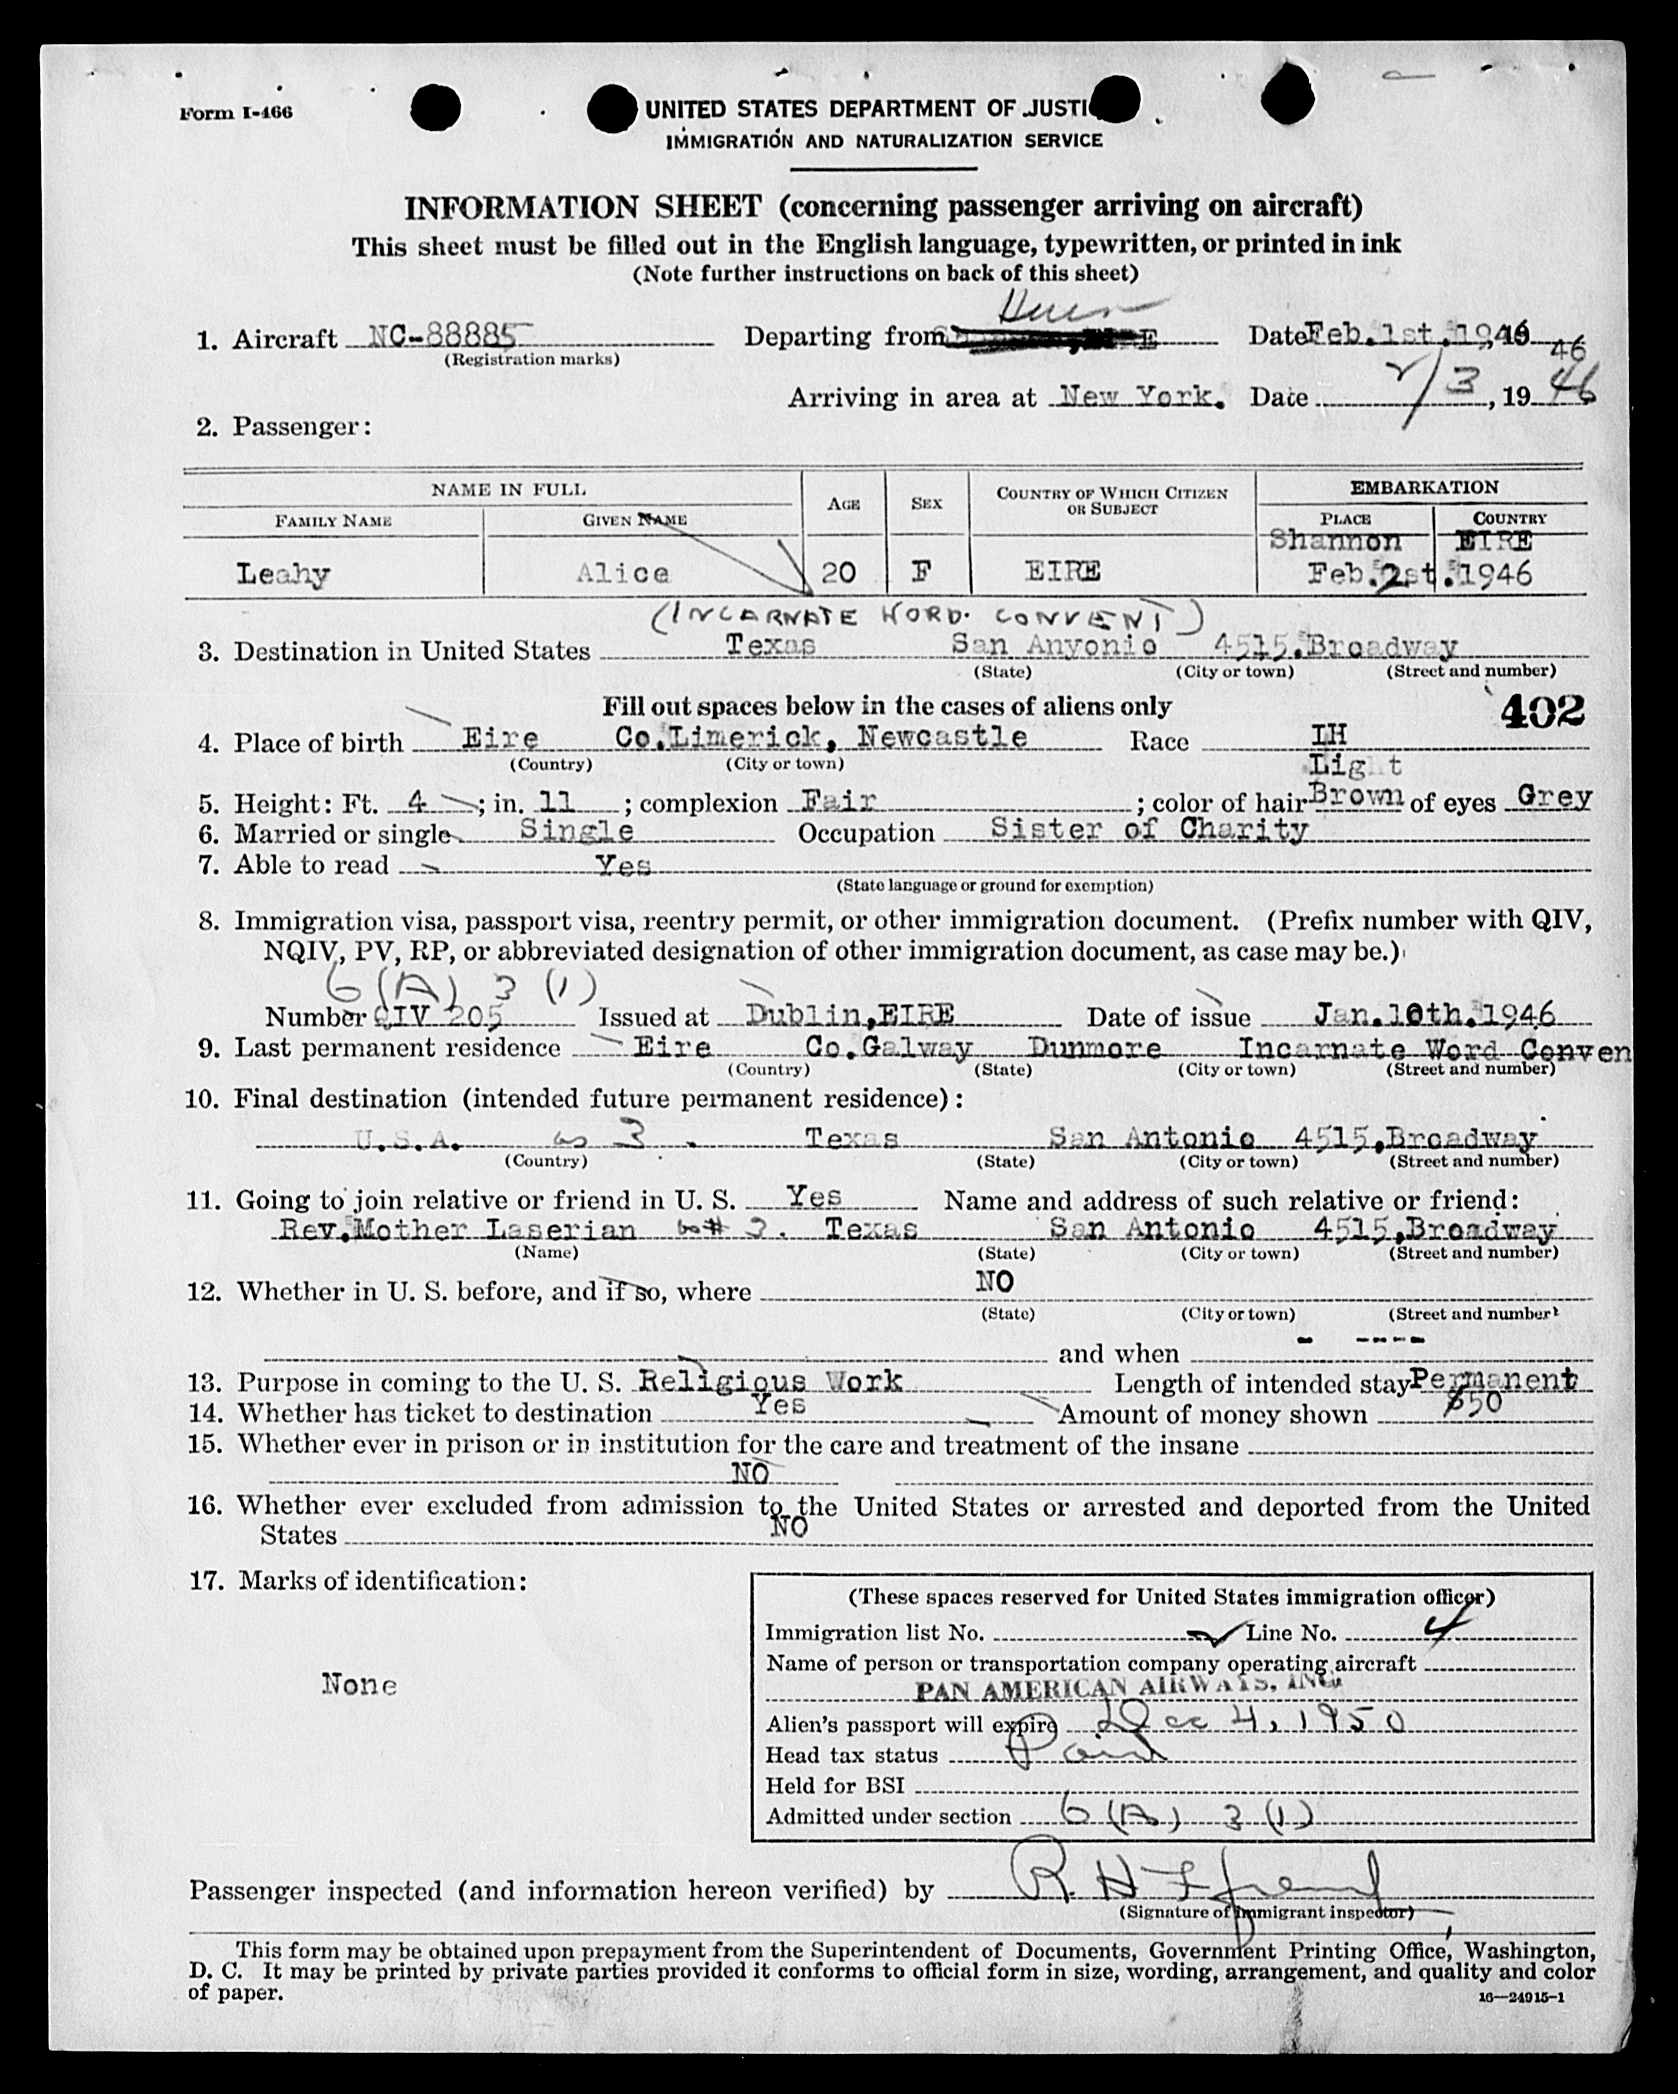 Form I-466
UNITED STATES DEPARTMENT OF JUSTI
IMMIGRATION AND NATURALIZATION SERVICE
INFORMATION SHEET (concerning passenger arriving on aircraft)
This sheet must be filled out in the English language, typewritten, or printed in ink
(Note further instructions on back of this sheet)
1. Aircraft NC-88885 Departing from EIRE Date Feb. 1st. 1946 46
(Registration marks)
Arriving in area at New York. Date 2/3, 1946
2. Passenger:
NAME IN FULL AGE SEX COUNTRY OF WHICH CITIZEN OR SUBJECT EMBARKATION
FAMILY NAME GIVEN NAME PLACE COUNTRY
Shannon EIRE
Leahy Alice 20 F EIRE Feb. 2st. 1946
(INCARNATE WORD. CONVENT)
3. Destination in United States Texas San Anyonio 4515. Broadway
(State) (City or town) (Street and number)
Fill out spaces below in the cases of aliens only 402
4. Place of birth Eire Co. Limerick, Newcastle Race IH
(Country) (City or town) Light
5. Height: Ft. 4; in. 11; complexion Fair; color of hair Brown of eyes Grey
6. Married or single Single Occupation Sister of Charity
7. Able to read Yes
(State language or ground for exemption)
8. Immigration visa, passport visa, reentry permit, or other immigration document. (Prefix number with QIV,
NQIV, PV, RP, or abbreviated designation of other immigration document, as case may be.)
6 (A) 3 (1)
Number QIV 205 Issued at Dublin, EIRE Date of issue Jan. 10th. 1946
9. Last permanent residence Eire Co. Galway Dunmore Incarnate Word Conven
(Country) (State) (City or town) (Street and number)
10. Final destination (intended future permanent residence):
U.S.A. as 3. Texas San Antonio 4515, Broadway
(Country) (State) (City or town) (Street and number)
11. Going to join relative or friend in U. S. Yes Name and address of such relative or friend:
Rev. Mother Laserian # 3. Texas San Antonio 4515, Broadway
(Name) (State) (City or town) (Street and number)
12. Whether in U. S. before, and if so, where NO
(State) (City or town) (Street and number)
and when - ----
13. Purpose in coming to the U. S. Religious Work Length of intended stay Permanent
14. Whether has ticket to destination Yes Amount of money shown $50
15. Whether ever in prison or in institution for the care and treatment of the insane
NO
16. Whether ever excluded from admission to the United States or arrested and deported from the United
States NO
17. Marks of identification:
None
(These spaces reserved for United States immigration officer)
Immigration list No. 2 Line No. 4
Name of person or transportation company operating aircraft
PAN AMERICAN AIRWAYS, INC.
Alien's passport will expire Dec 4, 1950
Head tax status Paid
Held for BSI
Admitted under section 6 (A) 3 (1)
Passenger inspected (and information hereon verified) by R. H.
(Signature of immigrant inspector)
This form may be obtained upon prepayment from the Superintendent of Documents, Government Printing Office, Washington,
D. C. It may be printed by private parties provided it conforms to official form in size, wording, arrangement, and quality and color
of paper.
16—24915-1